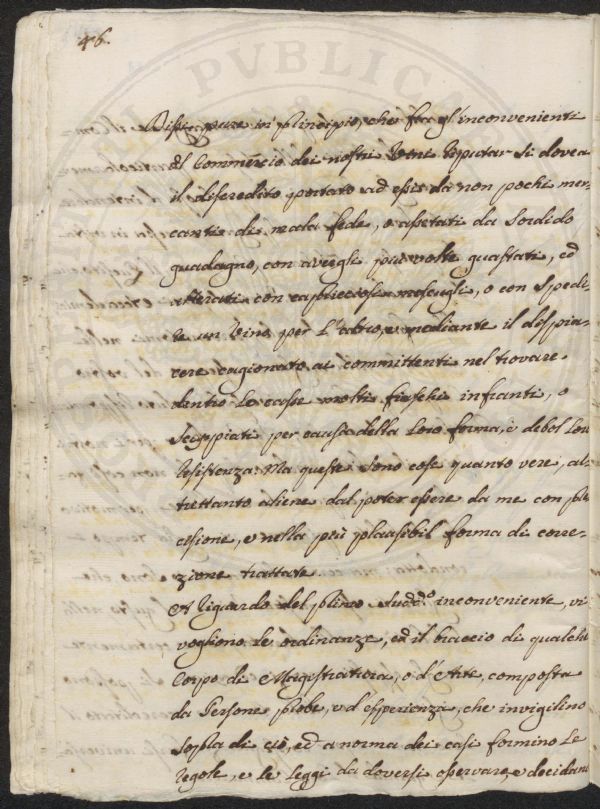 46.
Dissi pure in principio, che fra gl'inconvenienti
al Commercio dei nostri Vini riputar si dovea
il discredito portato ad essi da non pochi mer-
canti di mala fede, o assetati da Sordido
guadagno, con avergli più volte guastati, ed
alterati con capricciosi mescugli, o con Spedi-
re un Vino per l'altro, e mediante il dispia-
cere cagionato ai committenti nel trovare
dentro le casse molti fiaschi infranti, o
Scoppiati per causa della loro forma, e debol loro
resistenza: Ma queste sono cose quanto vere, al-
trettanto aliene dal poter essere da me con pre-
cisione, e nella più plausibil forma di corre-
zione trattate.
A riguardo del primo sudd.º inconveniente, vi
vogliono le ordinanze, ed il braccio di qualche
Corpo di Magistratura, o d'Arte, composta
da Persone probe, e d'esperienza, che invigilino
sopra di ciò, ed a norma dei casi formino le
regole, e le leggi da doversi osservare, e decidano
PVBLICAE